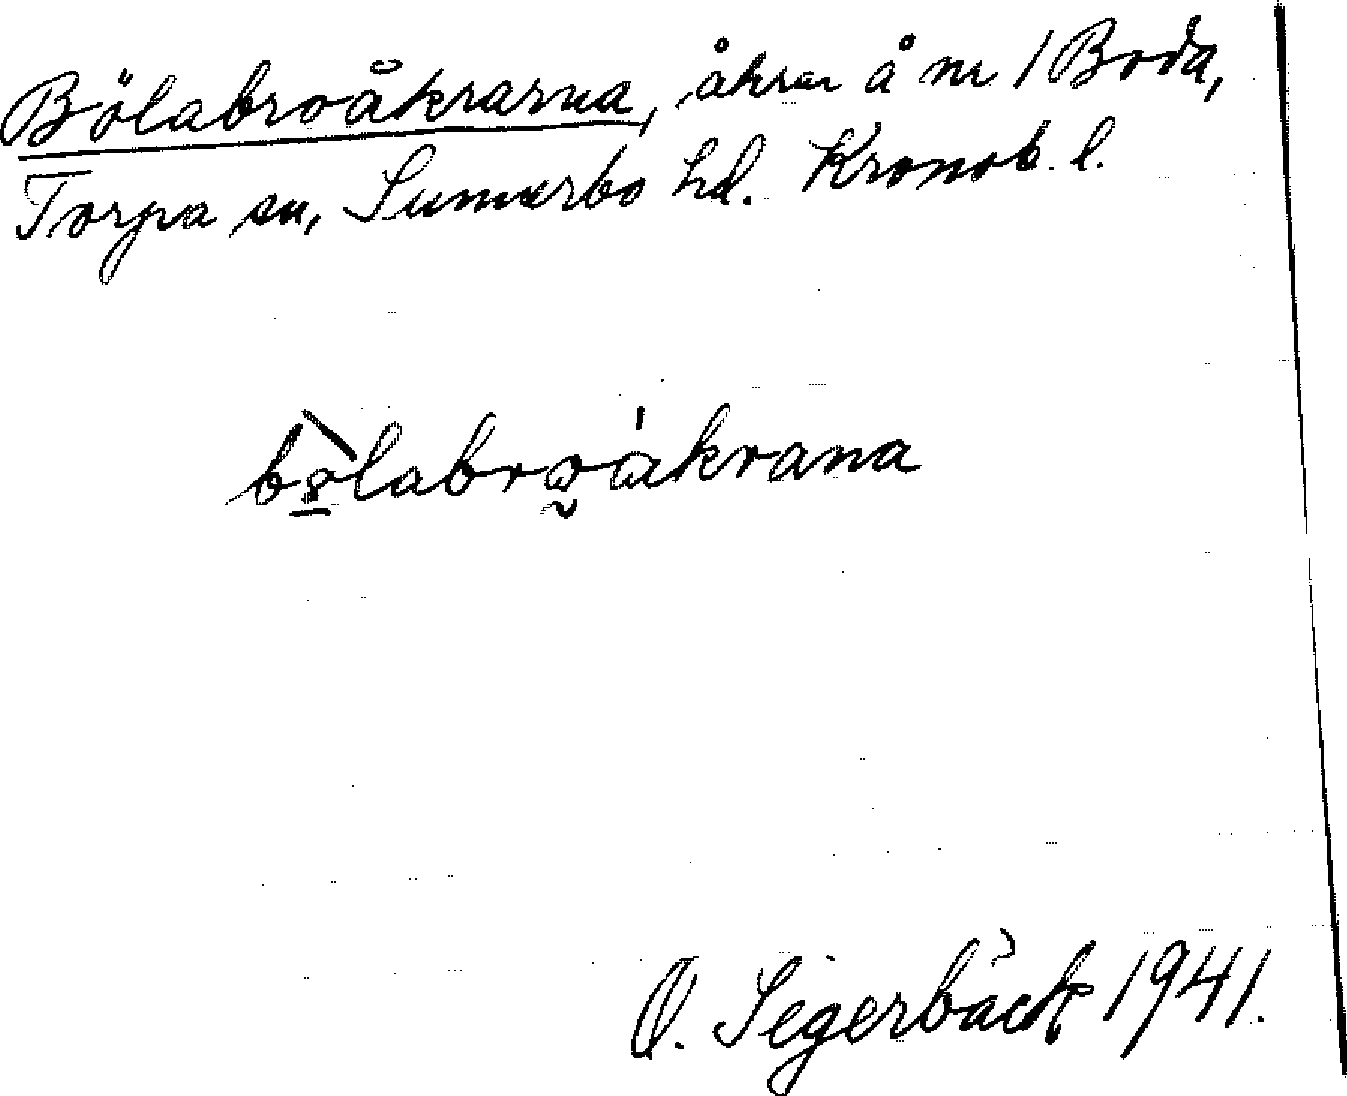 Bölabroåkrarna, åkrar å nr 1 Boda,
Torpa sn, Sunnerbo hd. Kronob. l.
bölabroåkrana
O. Segerbäck 1941.